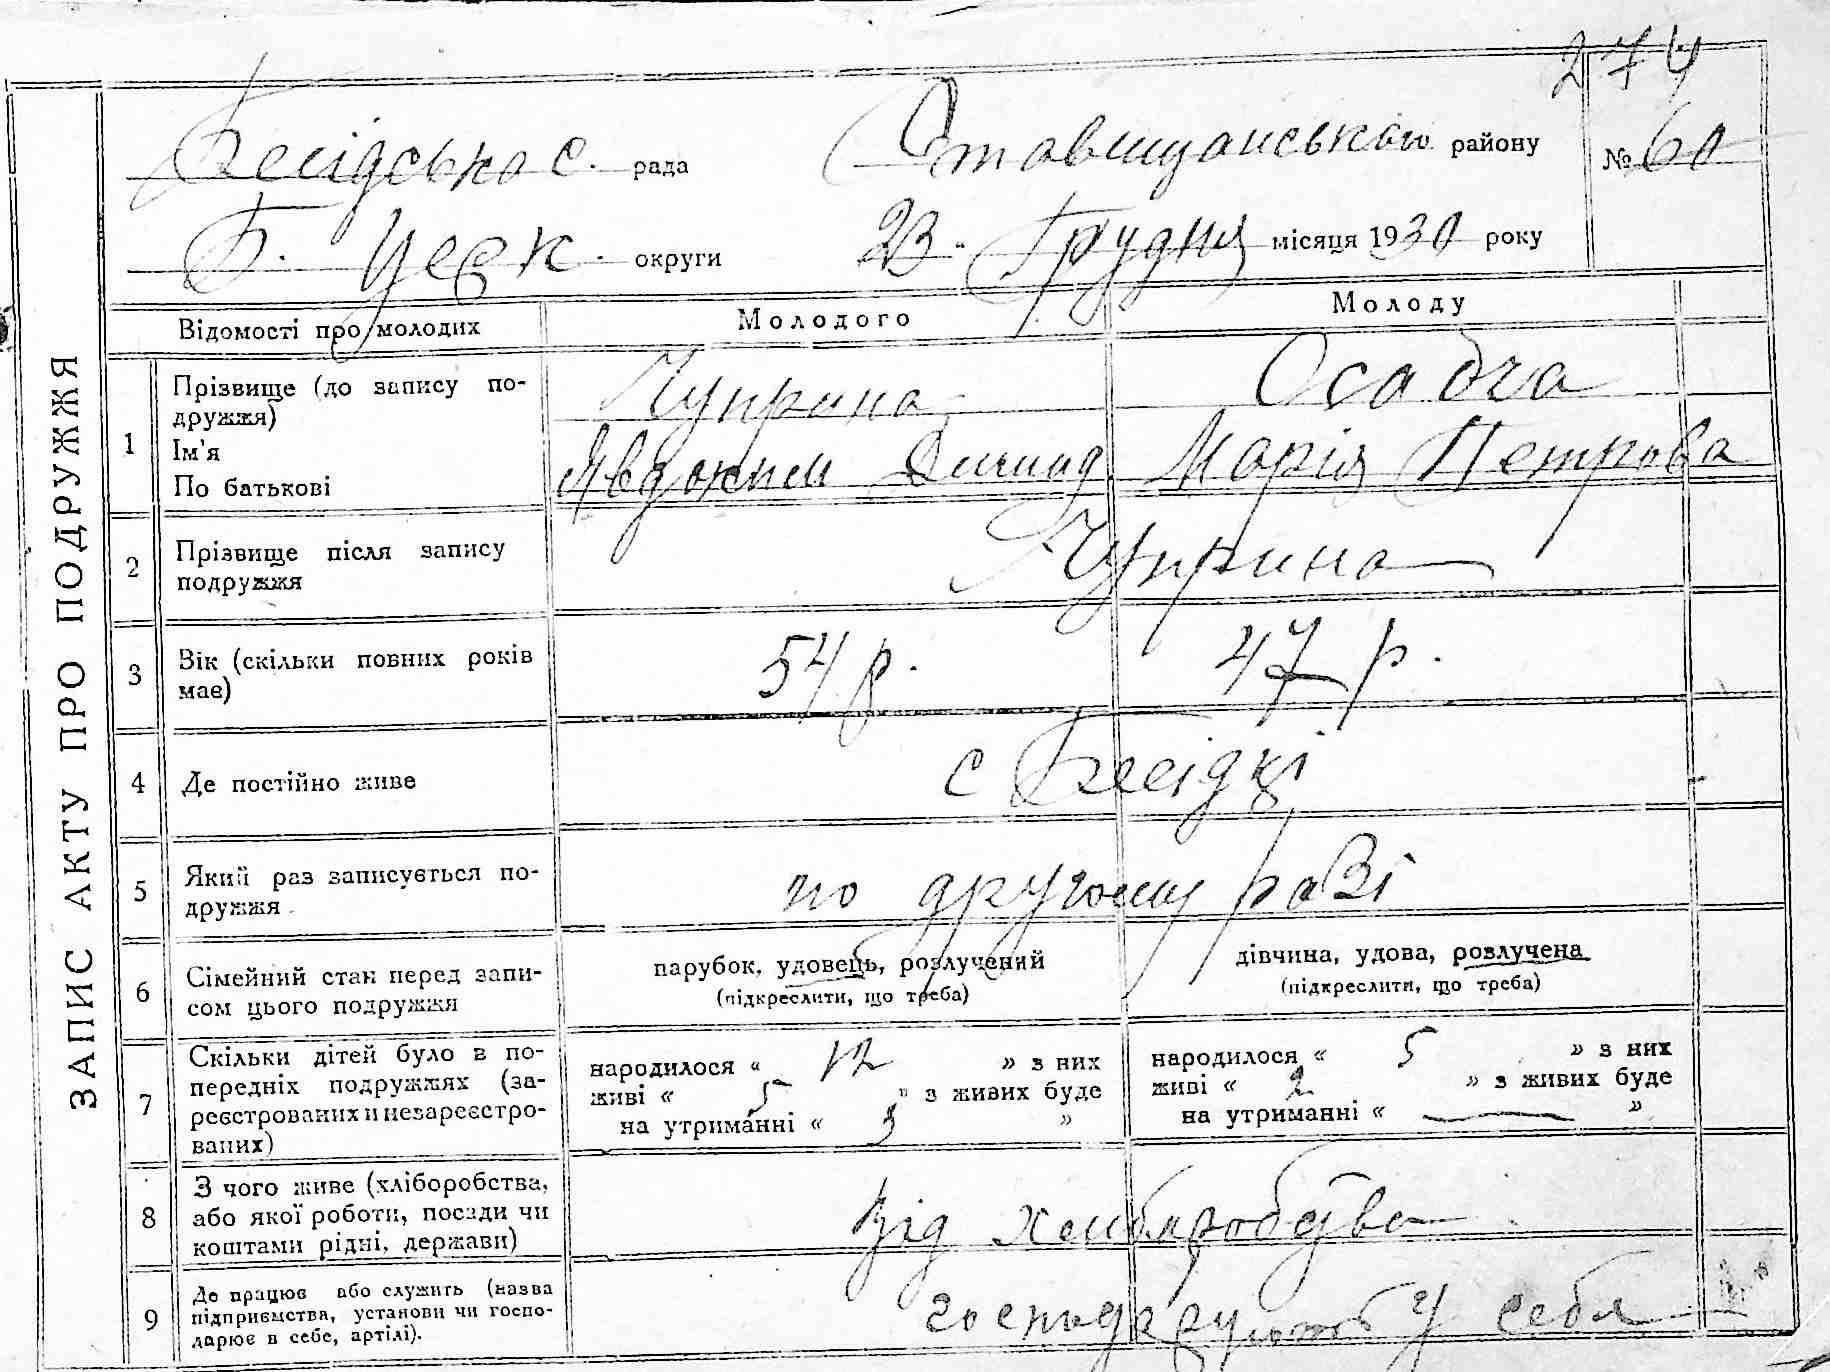 274
Бесідська с. рада Ставищанського району № 60
Б. Церк. округи 23. Грудня місяця 1930 року
ЗАПИС АКТУ ПРО ПОДРУЖЖЯ
Відомості про молодих Молодого Молоду
1 Прізвище (до запису по-
дружжя) Чуприна Осадча
Ім'я
По батькові Явдоким Демид. Марія Петрова
2 Прізвище після запису
подружжя Чуприна
3 Вік (скільки повних років
має) 54 р. 47 р.
4 Де постійно живе с Бесідкі
5 Який раз записується по-
дружжя по другому разі
6 Сімейний стан перед запи-
сом цього подружжя
парубок, удовець, розлучений дівчина, удова, розлучена
(підкреслити, що треба) (підкреслити, що треба)
7 Скільки дітей було в по-
передніх подружжях (за-
реєстрованих и незареєстро-
ваних)
народилося « 12 » з них народилося « 5 » з них
живі « 5 » з живих буде живі « 2 » з живих буде
на утриманні « 3 » на утриманні « — »
8 З чого живе (хліборобства,
або якої роботи, посади чи
коштами рідні, держави) Від хліборобства
9 Де працює або служить (назва
підприємства, установи чи госпо-
дарює в себе, артілі). господарують у себе